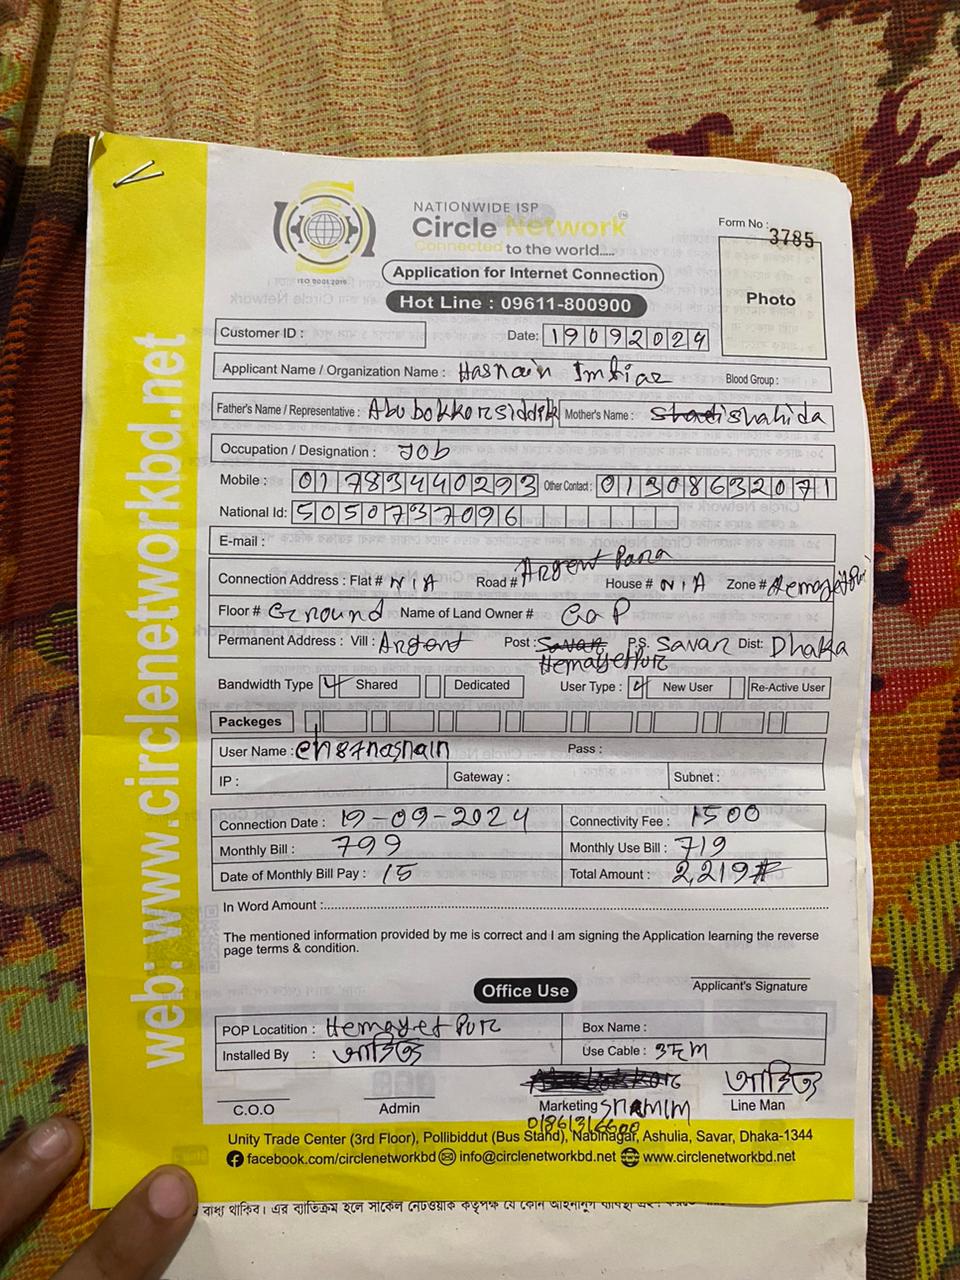 NATIONWIDE ISP
Circle Network TM
Connected to the world.....
ISO 9001:2015
Form No : 3785
Application for Internet Connection
Hot Line : 09611-800900
Photo
Customer ID :
Date: 19092024
Applicant Name / Organization Name : Hasnain Imtiaz Blood Group :
Father's Name / Representative : Abubokkorsiddik Mother's Name : Shahida
Occupation / Designation : Job
Mobile : 01783440293 Other Contact : 01308632071
National Id: 5050737096
E-mail :
Connection Address : Flat # N/A Road # Argent Para House # N/A Zone # Hemayetpur
Floor # Ground Name of Land Owner # GaP
Permanent Address : Vill : Argent Post : Savar Hemayetpur P.S. Savar Dist: Dhaka
Bandwidth Type Shared Dedicated User Type : New User Re-Active User
Packeges
User Name : ch87hasnain Pass :
IP : Gateway : Subnet :
Connection Date : 19-09-2024 Connectivity Fee : 1500
Monthly Bill : 799 Monthly Use Bill : 719
Date of Monthly Bill Pay : 15 Total Amount : 2,219#
In Word Amount :
The mentioned information provided by me is correct and I am signing the Application learning the reverse
page terms & condition.
Applicant's Signature
Office Use
POP Locatition : Hemayet Pur Box Name :
Installed By : Use Cable : 35M
C.O.O Admin Marketing Shamim Line Man
01861316600
Unity Trade Center (3rd Floor), Pollibiddut (Bus Stand), Nabinagar, Ashulia, Savar, Dhaka-1344
facebook.com/circlenetworkbd info@circlenetworkbd.net www.circlenetworkbd.net
web: www.circlenetworkbd.net
বাধ্য থাকিব। এর ব্যতিক্রম হলে সার্কেল নেটওয়ার্ক কর্তৃপক্ষ যে কোন আইনানুগ ব্যবস্থা